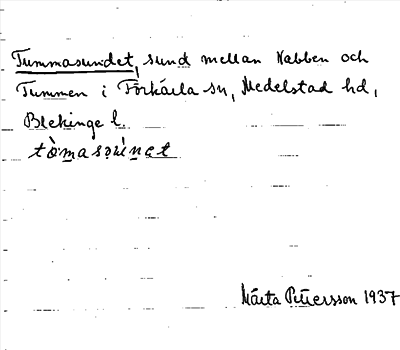 Tummasundet, sund mellan Nabben och
Tummen i Förkärla sn, Medelstad hd,
Blekinge l.
Märta Petersson 1937